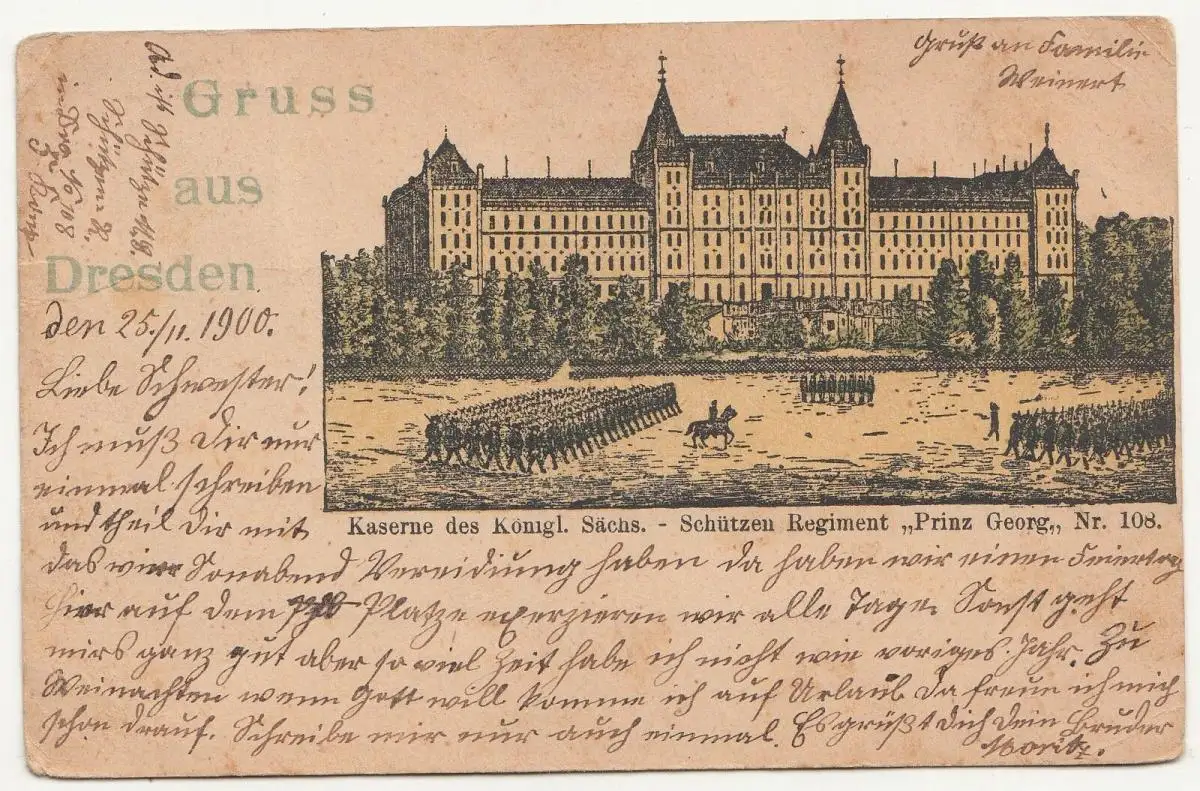 Gruß an Familie
Weinert
Gruss
aus
Dresden
Ad. ist Schütze M. G.
Schützen R.
in Dresd. No 108
den 25./11. 1900.
Liebe Schwester!
Ich muß Dir nur
einmal schreiben
und theil Dir mit
Kaserne des Königl. Sächs. - Schützen Regiment „Prinz Georg„ Nr. 108.
das wir Sonabend Vereidung haben da haben wir einen Feiertag
hier auf dem Platze exerzieren wir alle Tage. Sonst geht
mirs ganz gut aber so viel Zeit habe ich nicht wie voriges Jahr. Zu
Weinachten wenn Gott will komme ich auf Urlaub da freun ich mich
schon drauf. Schreibe mir nur auch einmal. Es grüßt Dich dein Bruder
Moritz.